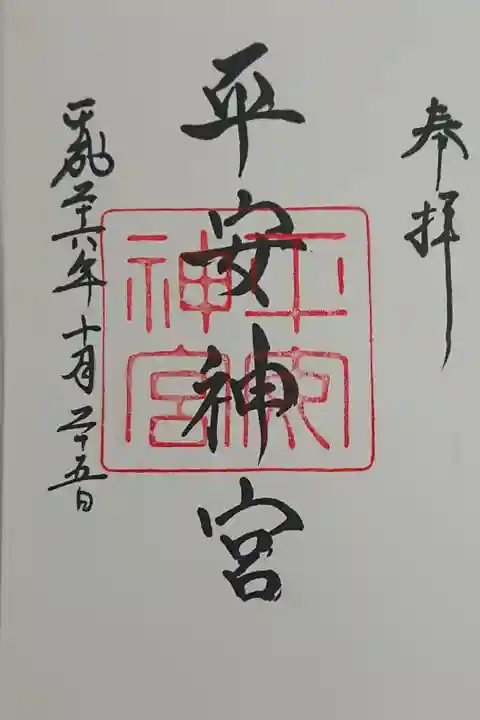 奉拝
平安神宮
平成二十六年十月二十五日
平安
神宮